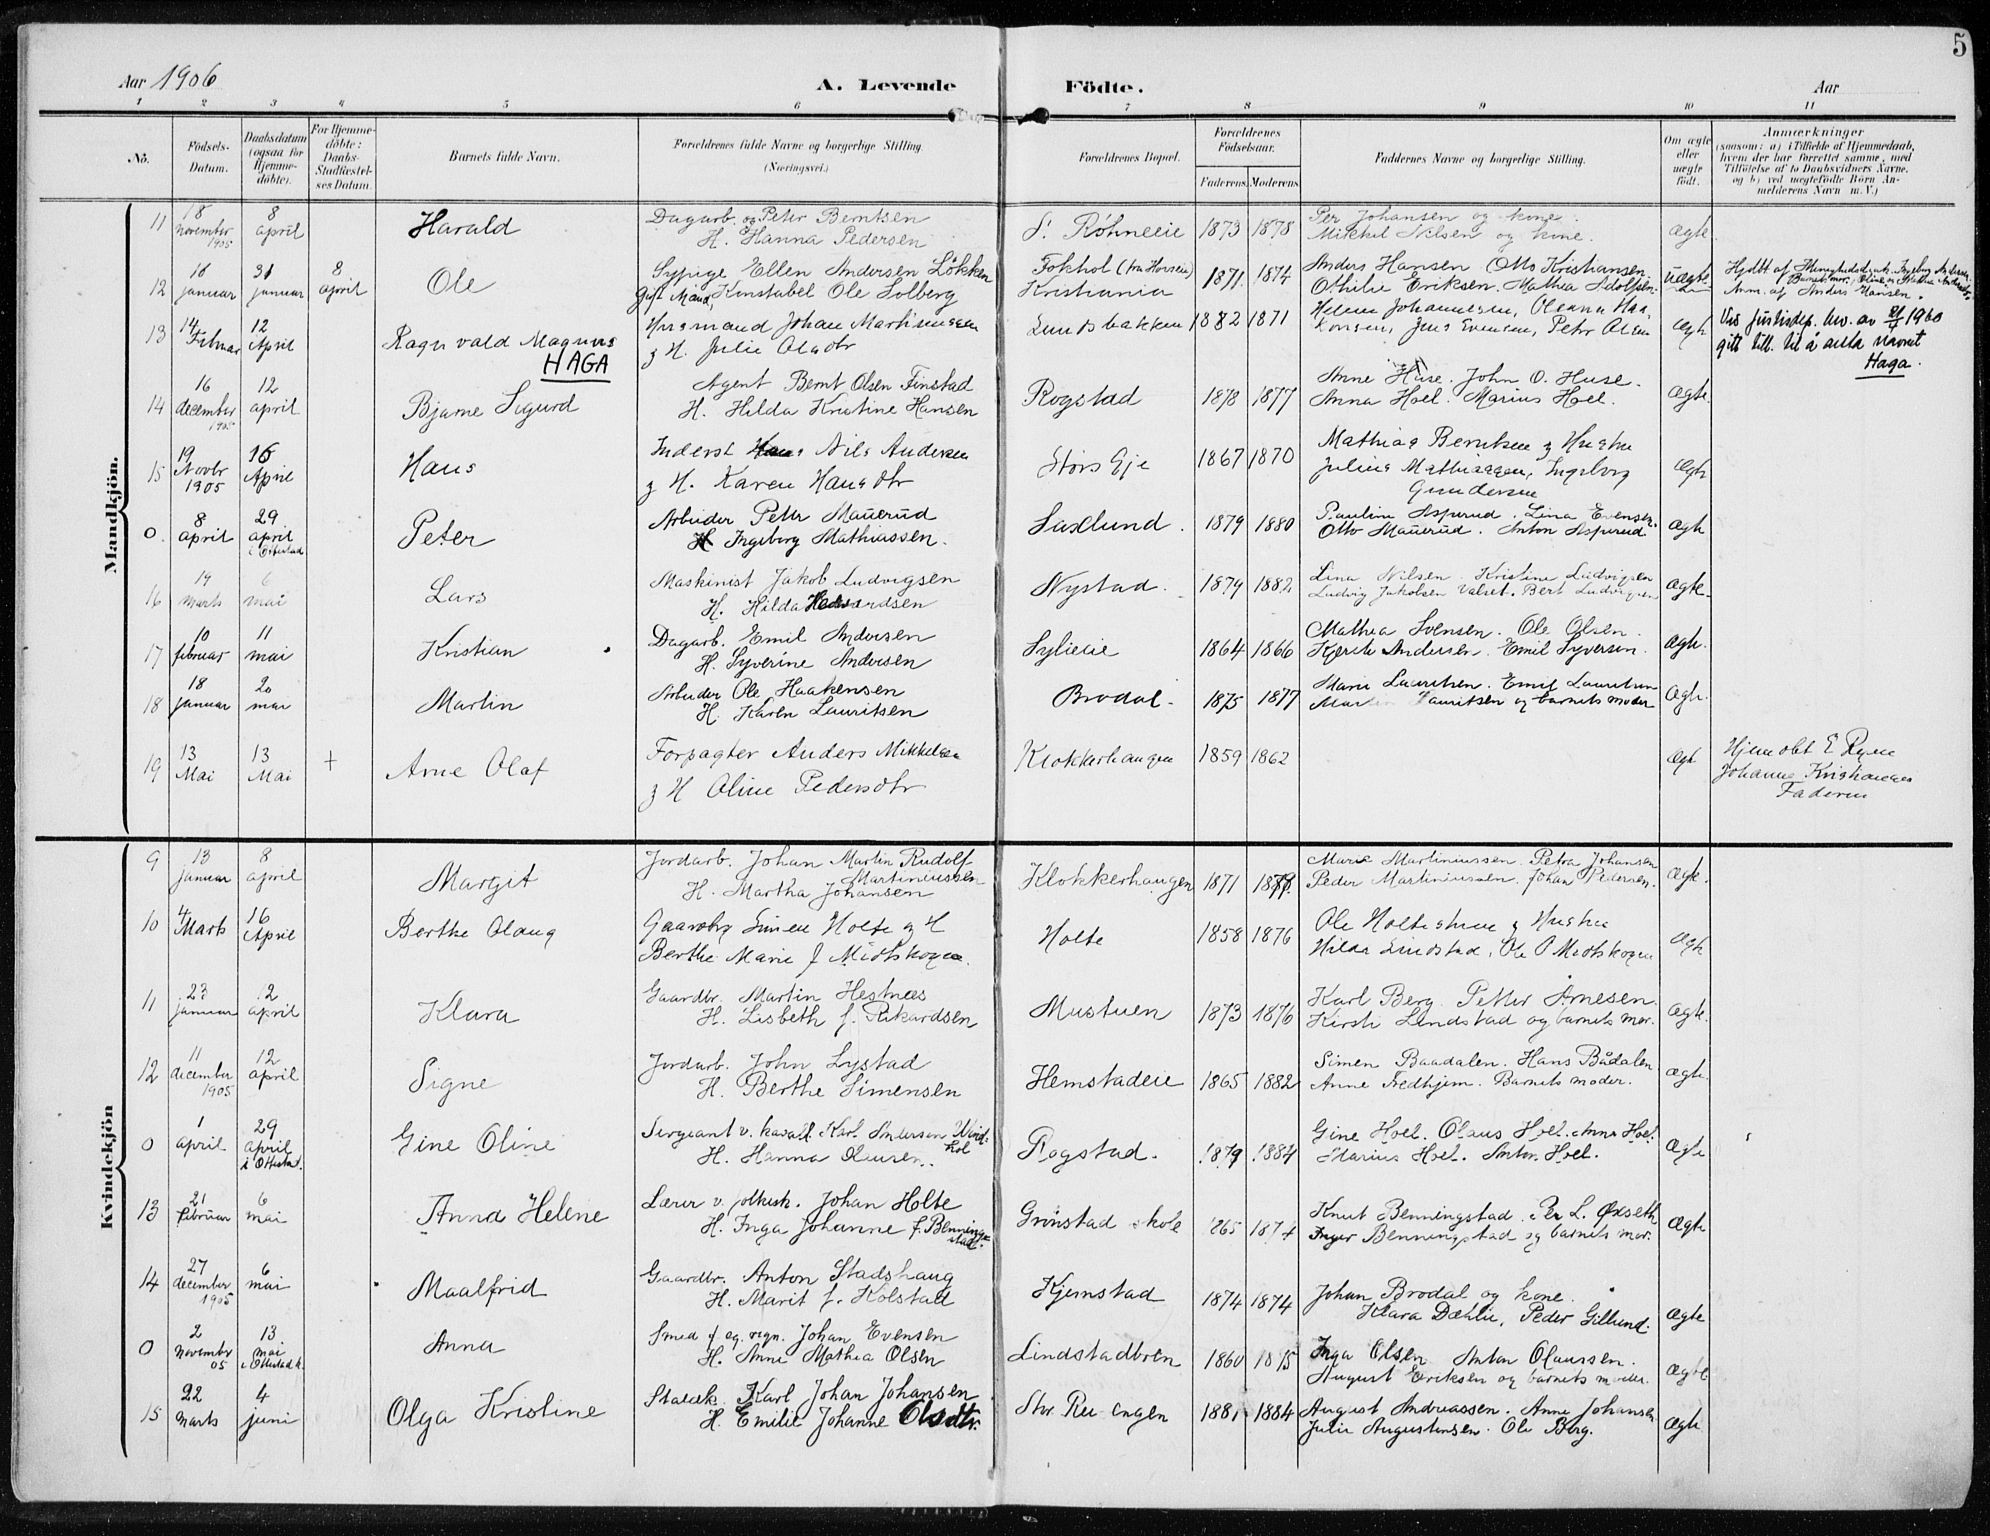 5
Aar 1906
A. Levende
Födte.
Aar
1 2 3 4 5 6 7 8 9 10 11
Nö.
Födsels-
Datum.
Daabsdatum
(ogsaa for
Hjemme-
döbte).
For Hjemme-
döbte:
Daabs-
Stadfæstel-
ses Datum.
Barnets fulde Navn.
Forældrenes fulde Navne og borgerlige Stilling.
(Næringsvei.)
Forældrenes Bopæl.
Forældrenes
Födselsaar.
Faderens. Moderens.
Faddernes Navne og borgerlige Stilling.
Om ægte
eller
uægte
födt.
Anmærkninger
(saasom: a) i Tilfælde af Hjemmedaab,
hvem der har forrettet samme, med
Tilföielse af to Daabsvidners Navne.
og b) ved uægtefödte Börn An-
melderens Navn m. V.)
Mandkjön.
11 18 november 1905 8 april Harald Dagarb. og Peter Berntsen S. Röhneeie 1873 1878 Per Johansen og kone. Ægte.
H. Hanna Pedersen Mikkel Nilsen og kone.
12 16 januar 31 januar 8 april Ole Sypige Ellen Andersen Løkken Fokhol 1871 1874 Anders Hansen Otto Kristiansen Uægte
Gift Mand, Konstabel Ole Solberg Kristiania Othilie Eriksen, Mathea Adolfsen
Anm. af Anders Hansen.
13 14 Februar 12 April Ragnvald Magnus Husmand Johan Martinussen Lundsbakken 1882 1871 Helene Johannesen, Oleanna Haa- Ægte Vis justisdep. bev. av 21/4 1960
HAGA og H. Julie Olsdtr konsen, Jens Evensen, Peter Olsen gitt till. til å anta navnet
Haga.
14 16 december 1905 12 april Bjarne Sigurd Agent Bernt Olsen Finstad Rogstad 1873 1877 Anne Huse. John O. Huse. Ægte.
H. Hilda Kristine Hansen Anna Hoel. Marius Hoel.
15 19 Novbr 1905 16 April Hans Inderst Nils Andersen Störs Eje 1867 1870 Mathias Berntsen og Hustru Ægte
og H. Karen Hansdtr Julius Mathiassen, Ingeborg
Gundersen
0. 8 april 29 april i Ottestad Peter Arbeider Petter Mauerud Saxlund. 1879 1880 Pauline Aspurud. Lina Evensen. Ægte
H Ingeborg Mathiassen. Otto Mauerud. Anton Aspurud
16 19 marts 6 mai Lars Maskinist Jakob Ludvigsen Nystad. 1879 1882 Lina Nilsen. Kristine Ludvigsen Ægte.
H. Hilda Ludvig Jakobsen Valset. Bert Ludvigsen
17 10 februar 11 mai Kristian Dagarb. Emil Andersen Sylieeie 1864 1866 Mathea Svensen. Ole Olsen. Ægte.
H. Syverine Andersen Kjersti Andersen. Emil Syversen.
18 18 januar 20 mai Martin Arbeider Ole Haakensen Brodal. 1875 1877 Marie Lauritsen. Emil Lauritsen Ægte.
H. Karen Lauritsen Martin Lauritsen og barnets moder
19 13 Mai 13 Mai + Arne Olaf Forpagter Anders Mikkelsen Klokkerhaugen 1859 1862 Ægte Hjemdbt E Ryen
og H Oline Pedersdtr Johanne Kristiansen
Faderen
Kvindekjön
9 13 januar 8 april Margit Jordarb. Johan Martin Rudolf Martiniussen Klokkerhaugen 1871 Marie Martiniussen. Petra Johansen Ægte.
H. Martha Johansen Peder Martiniussen. Johan Pedersen.
10 4 Marts 16 April Berthe Olaug Gaardbr Simen Holte og H Holte 1858 1876 Ole Holtestuen og Hustru Ægte
Berthe Marie f Midtskogen. Hilda Lindstad, Ole P Midtskogen
11 23 januar 12 april Klara Gaardbr. Martin Hestnæs Mustuen 1873 1876 Karl Berg. Petter Arnesen. Ægte.
H. Lisbeth f. Rikardsen Kirsti Lindstad og barnets mor.
12 11 december 1905 12 april Signe Jordarb. John Lystad Hemstadeie 1865 1882 Simen Baadalen. Hans Bådalen Ægte.
H. Berthe Simensen Anne Fredhjem. Barnets moder.
0 1 april 29 april i Ottestad. Gine Oline Sergeant v. kavall. Karl Andersen Rogstad. 1879 1884 Gine Hoel. Olaus Hoel. Anna Hoel. Ægte
H. Hanna Olausen. Marius Hoel. Anton Hoel.
13 21 februar 6 mai Anna Helene Lærer v. folkesk. Johan Holte Grönstad skole 1865 1874 Knut Benningstad. Per L. Øxseth Ægte
H. Inga Johanne f. Benningstad. Inger Benningstad og barnets mor.
14 27 december 1905 6 mai Maalfrid Gaardbr. Anton Stadshaug Kjemstad 1874 1874 Johan Brodal og kone. Ægte
H. Marit f. Kolstad Klara Dæhlie, Peder Gillund.
0 2 november 05 13 mai i Ottestad k. Anna Smed f. eg. regn. Johan Evensen Lindstadbren 1860 1875 Inga Olsen Anton Olaussen. Ægte
H. Anne Mathea Olsen August Eriksen og barnets moder.
15 22 marts 4 juni Olga Kristine Karl Johan Johansen 1881 1884 August Andreassen. Anne Johansen Ægte
H. Emilie Johanne Olsdtr. Julie Augustinsen. Ole Berg.